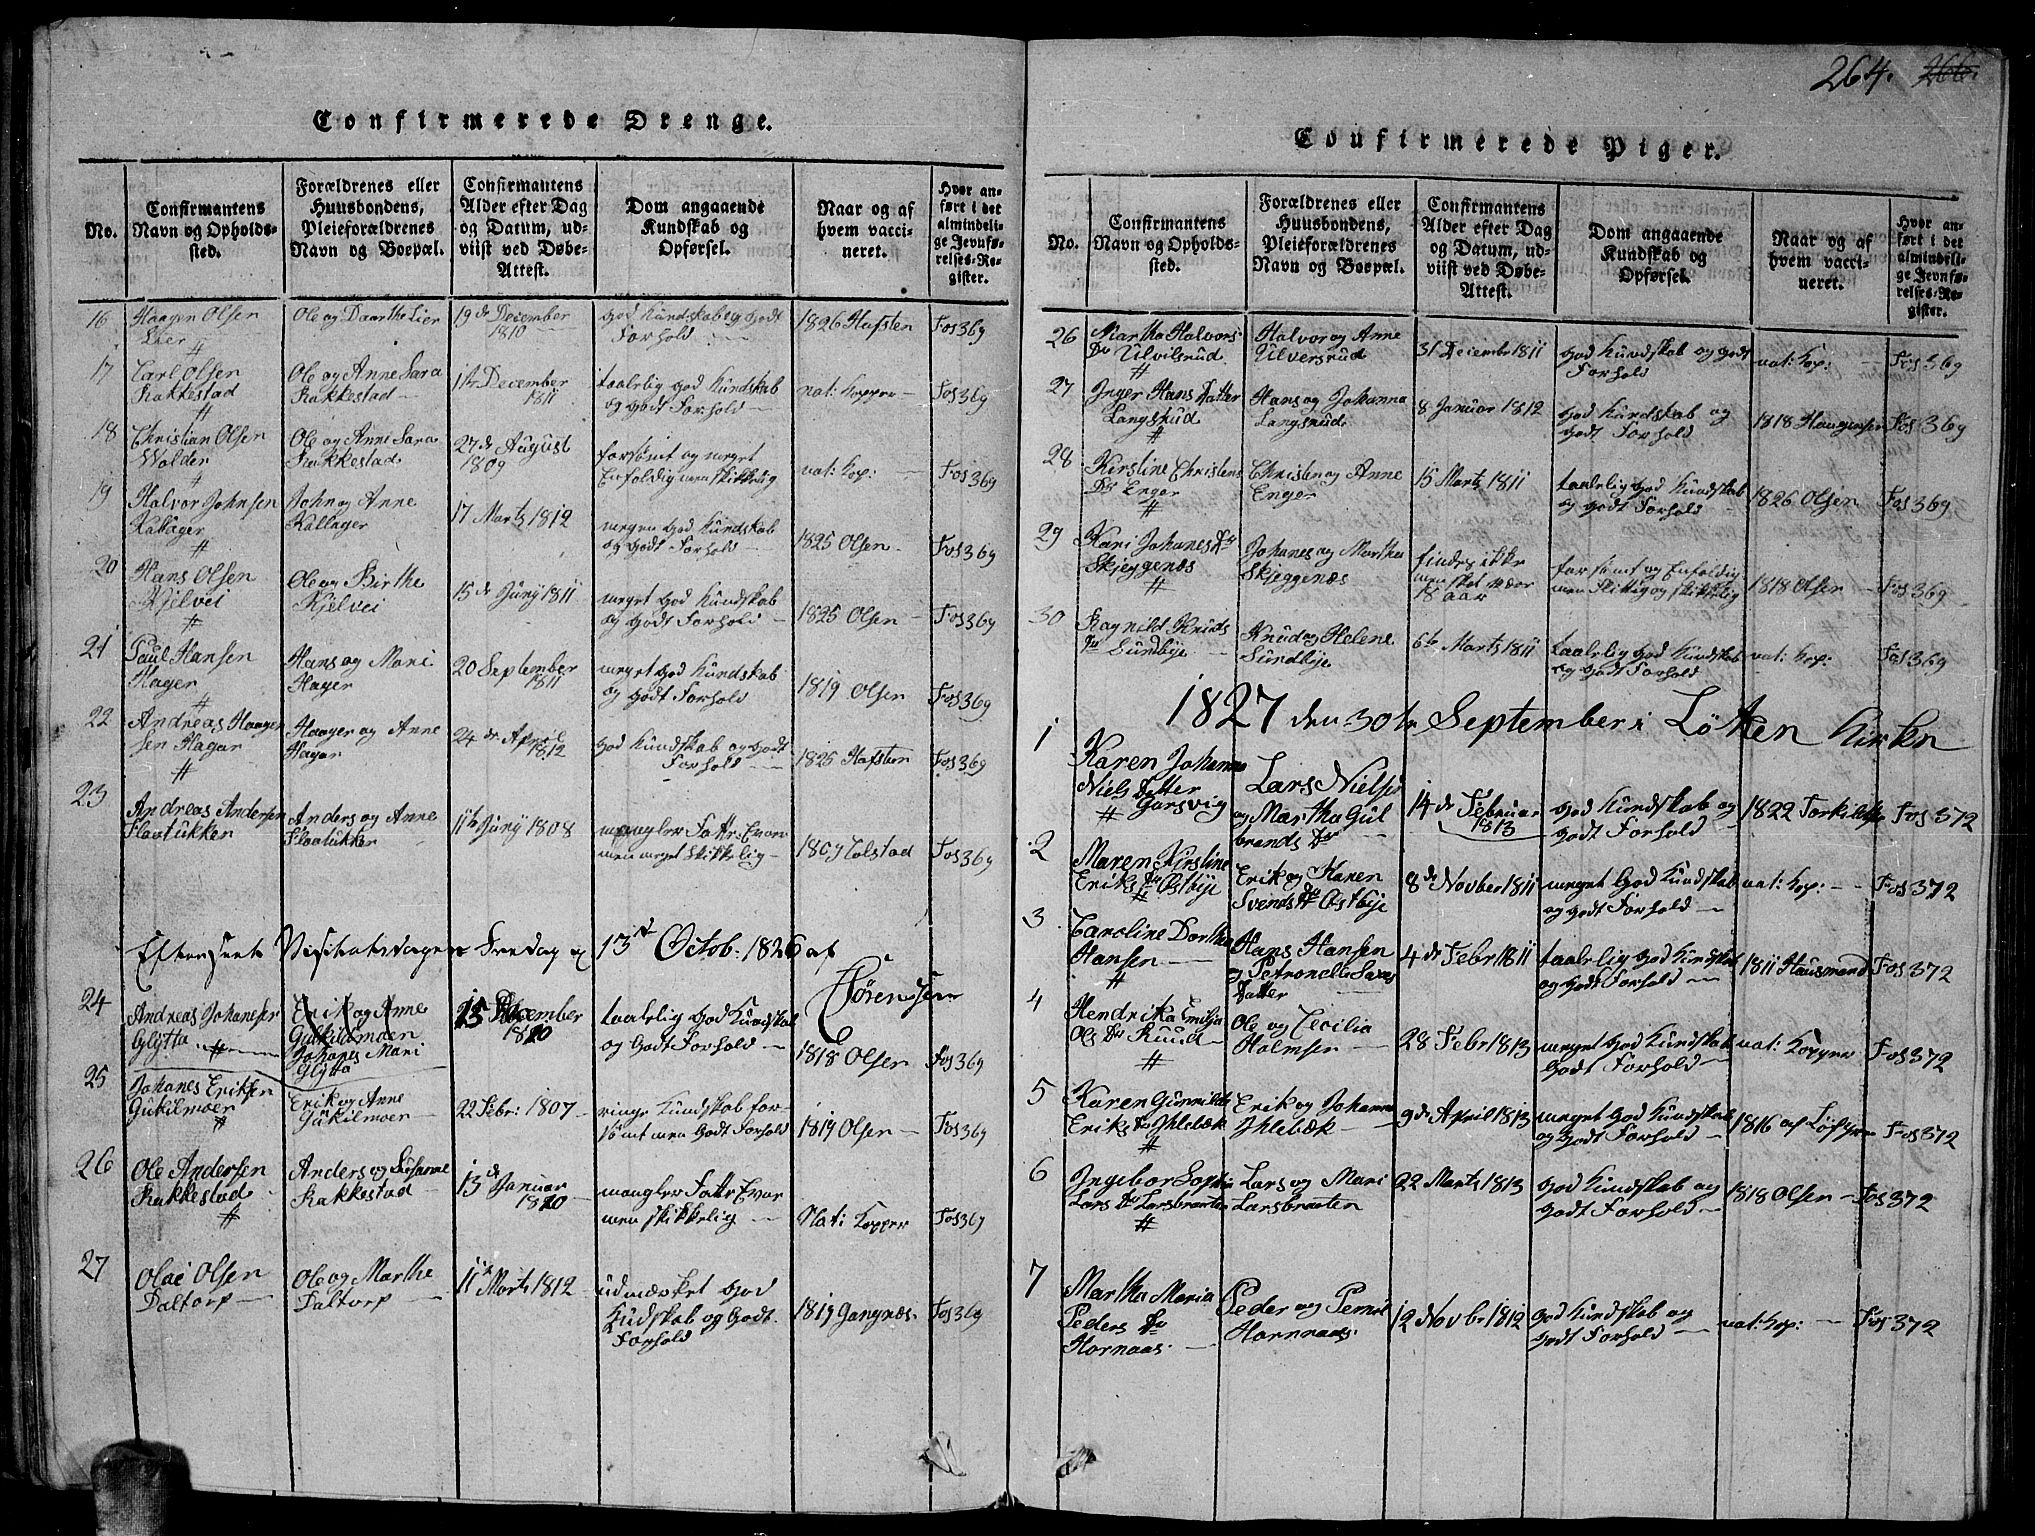 Confirmerede Drenge.
No.
Confirmantens
Navn og Opholds-
sted.
Forældrenes eller
Huusbondens,
Pleieforældrenes
Navn og Boepæl.
Confirmantens
Alder efter Dag
og Datum, ud-
viist ved Døbe-
Attest.
Dom angaaende
Kundskab og
Opførsel.
Naar og af
hvem vacci-
neret.
Hvor an-
ført i det
almindeli-
ge Jevnfø-
relses-Re-
gister.
16
Haagen Olsen
Lier
#
Ole og Daarthe Lier
19de December
1810
God Kundskab og Godt
Forhold
1826 Hafsten
Fos 369
17
Carl Olsen
Rakkestad
#
Ole og Anne Sara
Rakkestad
1ste December
1811
taalelig God Kundskab
og Godt Forhold
nat: Kopper
Fos 369
18
Christian Olsen
Wolder
Ole og Anne Sara
Rakkestad
27de August
1809
forsømt og meget
Enfoldig men skikkelig
nat: Kop:
Fos 369
19
Halvor Johnsen
Kallager
#
John og Anne
Kallager
17 Marts 1812
megen God Kundskab
og Godt Forhold
1825 Olsen
Fos 369
20
Hans Olsen
Kjelvei
#
Ole og Birthe
Kjelvei
15de Juny 1811
meget God Kundskab
og Godt Forhold
1825 Olsen
Fos 369
21
Paul Hansen
Hager
#
Hans og Mari
Hager
20 September
1811
meget God Kundskab
og Godt Forhold
1819 Olsen
Fos 369
22
Andreas Haagen
sen Hagar
#
Haagen og Anne
Hagar
24de April
1812
God Kundskab og Godt
Forhold
1825 Hafsten
Fos 369
23
Andreas Andersen
Flaatukker
Anders og Anne
Flaatukker
11te Juny 1808
mangler Fatte Evne
men meget skikkelig
1809 Tolstad
Fos 369
Efterseet Visitatsdagen Fredag
13de Octob: 1826 af
Sørensen
24
Andreas Johanesen
Glytta #
Erik og Anne
Gukilsmoen
Johanes Mari
Glytta
15 December
1810
taalelig God Kundskab
og Godt Forhold
1818 Olsen
Fos 369
25
Johanes Eriksen
Gukilmoen
#
Erik og Anne
Gukilmoen
22 Febr: 1807
ringe Kundskab for-
sømt men Godt Forhold
1819 Olsen
Fos 369
26
Ole Andersen
Rakkestad
#
Anders og Susanne
Rakkestad
13de Januar
1810
mangler Fatte Evne
men skikkelig
Nat: Kopper
Fos 369
27
Olai Olsen
Daltorp
Ole og Marthe
Daltorp
11te Marts 1812
udmærket God
Kundskab og Godt
Forhold
1819 Gangnæs
Fos 369
264. 266.
Confirmerede Piger.
No.
Confirmantens
Navn og Opholds-
sted.
Forældrenes eller
Huusbondens,
Pleieforældrenes
Navn og Boepæl.
Confirmantens
Alder efter Dag
og Datum, ud-
viist ved Døbe-
Attest.
Dom angaaende
Kundskab og
Opførsel.
Naar og af
hvem vacci-
neret.
Hvor an-
ført i det
almindeli-
ge Jevnfø-
relses-Re-
gister.
26
Martha Halvors
Dr Ulvilsrud
#
Halvor og Anne
Ulversrud
31 December 1811
God Kundskab og Godt
Forhold
nat: Kop:
Fos 369
27
Inger Hans Datter
Langsrud
#
Hans og Johanna
Langsrud
8 Januar 1812
God Kundskab og
Godt Forhold
1818 Haagensen
Fos 369
28
Kirstine Christens
Dr Enger
#
Christen og Anne
Enger
15 Marts 1811
taalelig God Kundskab
og Godt Forhold
1826 Olsen
Fos 369
29
Kari Johanes Dr
Skjeggenæs
#
Johanes og Martha
Skjeggenæs
findes ikke
men skal være
18 aar
forsømt og Enfoldig
men flittig og skikkelig
1818 Olsen
Fos 369
30
Ragnild Knuds
Dr Sundbye
Knud og Helene
Sundbye
6te Marts 1811
taalelig God Kundskab
og Godt Forhold
nat: Kop:
Fos 369
1827 den 30te September i Løtten Kirke
1
Karen Johanne
Niels Datter
Garsvig
#
Lars Nielsen
og Martha Gul
brands Dr
14de Februar
1813
God Kundskab og
Godt Forhold
1822 Torkildsen
Fos 372
2
Maren Kirstine
Eriks Dr Østbye
#
Erik og Karen
Svends Dr Østbye
8de Novber 1811
meget God Kundskab
og Godt Forhold
nat: Kop:
Fos 372
3
Caroline Dorthea
Hansen
#
Hans Hansen
og Petronelle Lars
Datter
4de Febr 1811
taalelig God Kundskab
og Godt Forhold
1811 Hausmand
Fos 372
4
Hendrika Emilja
Ols Dr Ruud
#
Ole og Cecilia
Holmsen
28 Febr 1813
meget God Kundskab
Godt Forhold
nat: Kopper
Fos 372
5
Karen Gunnilda
Eriks Dr Ihlebæk
#
Erik og Johanne
Ihlebæk
9de April 1813
meget God Kundskab
og Godt Forhold
1816 af Løfgren
Fos 372
6
Ingebor Sophie
Lars Dr Larsbraaten
#
Lars og Mari
Larsbraaten
22 Marts 1813
God Kundskab og
Godt Forhold
1818 Olsen
Fos 372
7
Martha Maria
Peders Dr
Hornaas
Peder og Pernil
Hornnaas
12 Novbr 1812
God Kundskab og
Godt Forhold
nat: Kop:
Fos 372